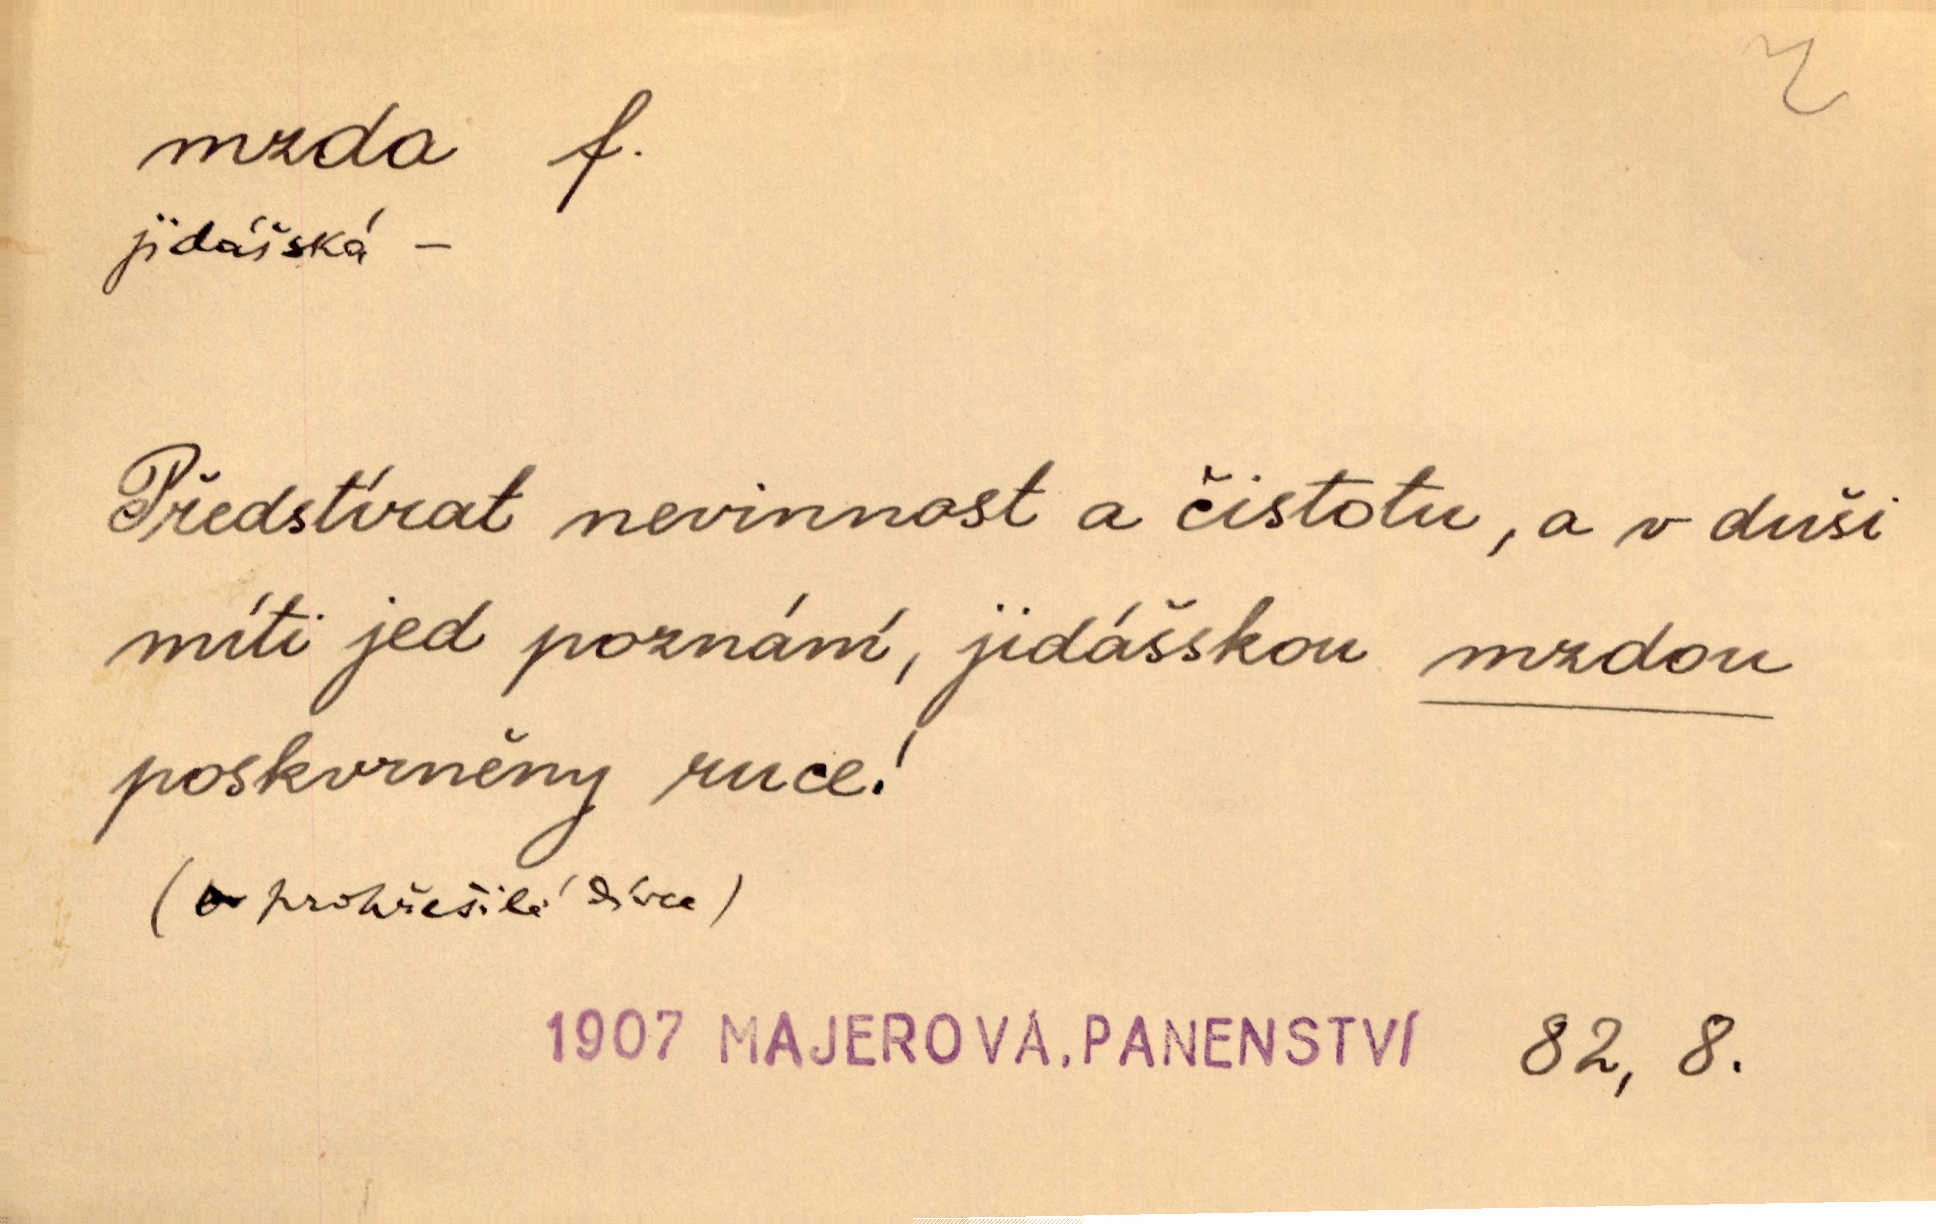 mzda f.
jidášská –
Předstírat nevinnost a čistotu, a v duši
míti jed poznání, jidášskou mzdou
poskvrněny ruce!
(o prohřešilé dívce)
1907 MAJEROVÁ. PANENSTVÍ 82, 8.